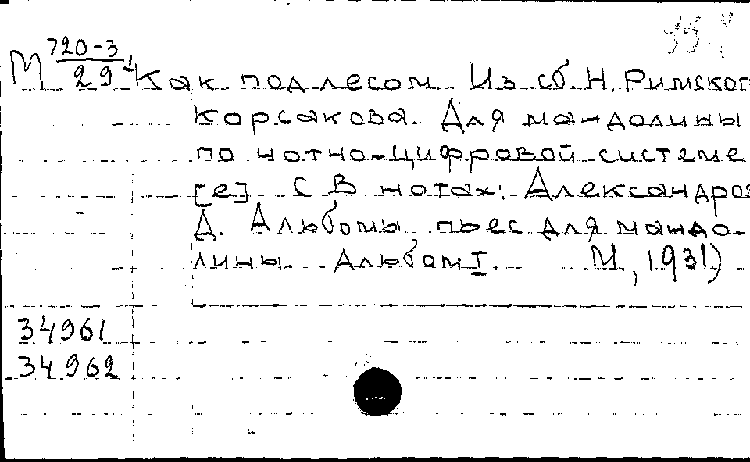 М 720-3/29 Как под лесом. Из сб. Н. Римског
Корсакова. Для мандолины
по нотно-цифровой системе
[e] (В нотах: Александров
Д. Альбомы пьес для мандо-
лины. Альбом I. М, 1931)
34961
34962